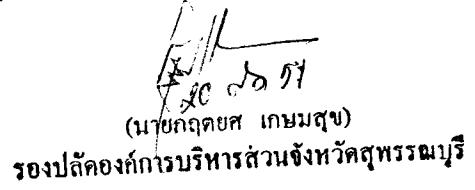 (นายกฤตยศ เกษมสุข)
รองปลัดองค์การบริหารส่วนจังหวัดสุพรรณบุรี